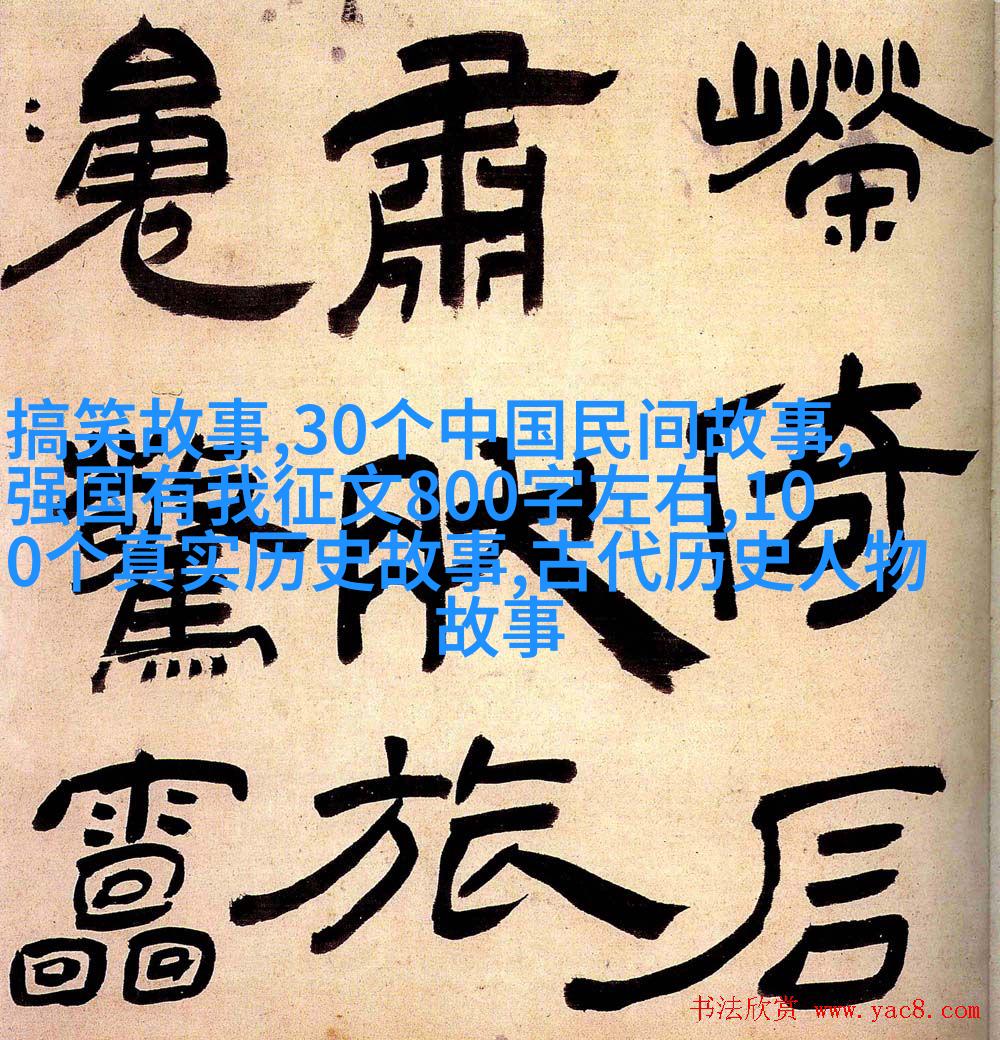 搞笑故事,30个中国民间故事,
强国有我征文800字左右,10
0个真实历史故事,古代历史人物
故事
嶸倚
肅服旅
驚靁
书法欣赏 www.yac8.com